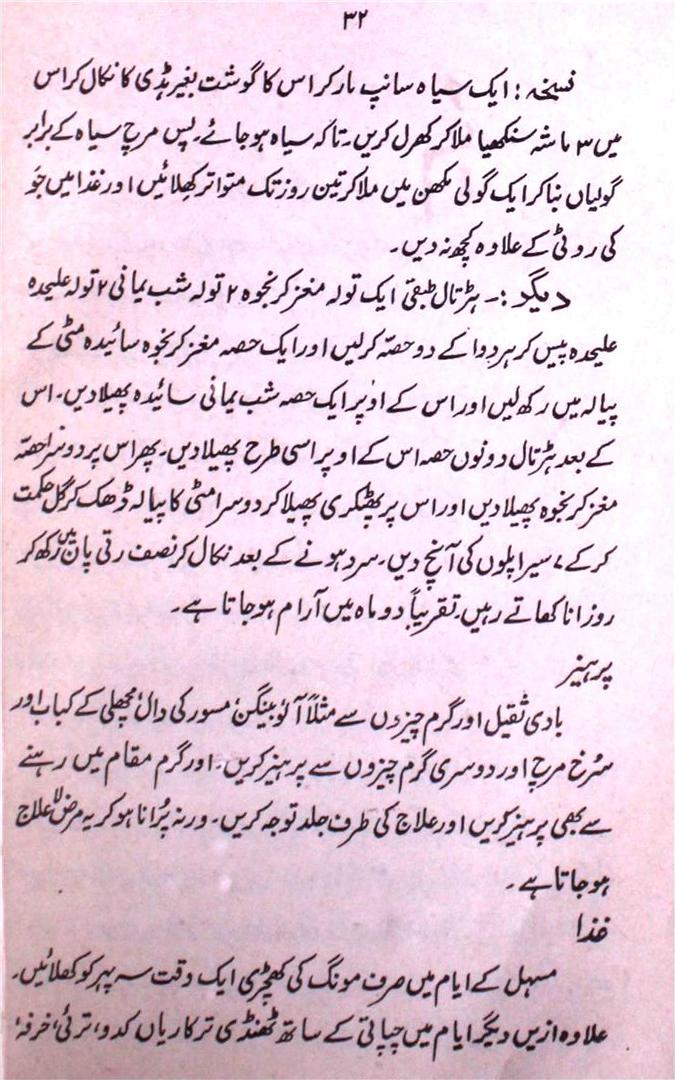 ۳۲
نسخہ : ایک سیاہ سانپ مار کر اس کا گوشت بغیر ہڈی کا نکال کر اس
میں ۳ ماشہ سنکھیا ملا کر کھرل کریں۔ تاکہ سیاہ ہو جائے۔ پس مرچ سیاہ کے برابر
گولیاں بنا کر ایک گولی مکھن میں ملا کر تین روز تک متواتر کھلائیں اور غذا میں جَو
کی روٹی کے علاوہ کچھ نہ دیں۔
دیگر :۔ ہڑتال طبقی ایک تولہ مغز کرنجوہ ۲ تولہ شب یمانی ۲ تولہ علیحدہ
علیحدہ پیس کر ہر دوا کے دو حصّہ کر لیں اور ایک حصہ مغز کرنجوہ سائیدہ مٹی کے
پیالہ میں رکھ لیں اور اس کے اوپر ایک حصہ شب یمانی سائیدہ پھیلا دیں۔ اس
کے بعد ہڑتال دونوں حصہ اس کے اوپر اسی طرح پھیلا دیں۔ پھر اس پر دوسرا حصّہ
مغز کرنجوہ پھیلا دیں اور اس پر پھٹکری پھیلا کر دوسرا مٹی کا پیالہ ڈھک کر گل حکمت
کر کے ۷ سیر اپلوں کی آنچ دیں۔ سرد ہونے کے بعد نکال کر نصف رتی پان میں رکھ کر
روزانا کھاتے رہیں۔ تقریباً دو ماہ میں آرام ہو جاتا ہے۔
پرہیز
بادی ثقیل اور گرم چیزوں سے مثلاً آلو، بینگن، مسور کی دال، مچھلی کے کباب اور
سُرخ مرچ اور دوسری گرم چیزوں سے پرہیز کریں۔ اور گرم مقام میں رہنے
سے بھی پرہیز کریں اور علاج کی طرف جلد توجہ کریں۔ ورنہ پُرانا ہو کر یہ مرض لا علاج
ہو جاتا ہے۔
غذا
مسہل کے ایام میں صرف مونگ کی کھچڑی ایک وقت سہ پہر کو کھلائیں۔
علاوہ ازیں دیگر ایام میں چپاتی کے ساتھ ٹھنڈی ترکاریاں کدو، ترئی، خرفہ،